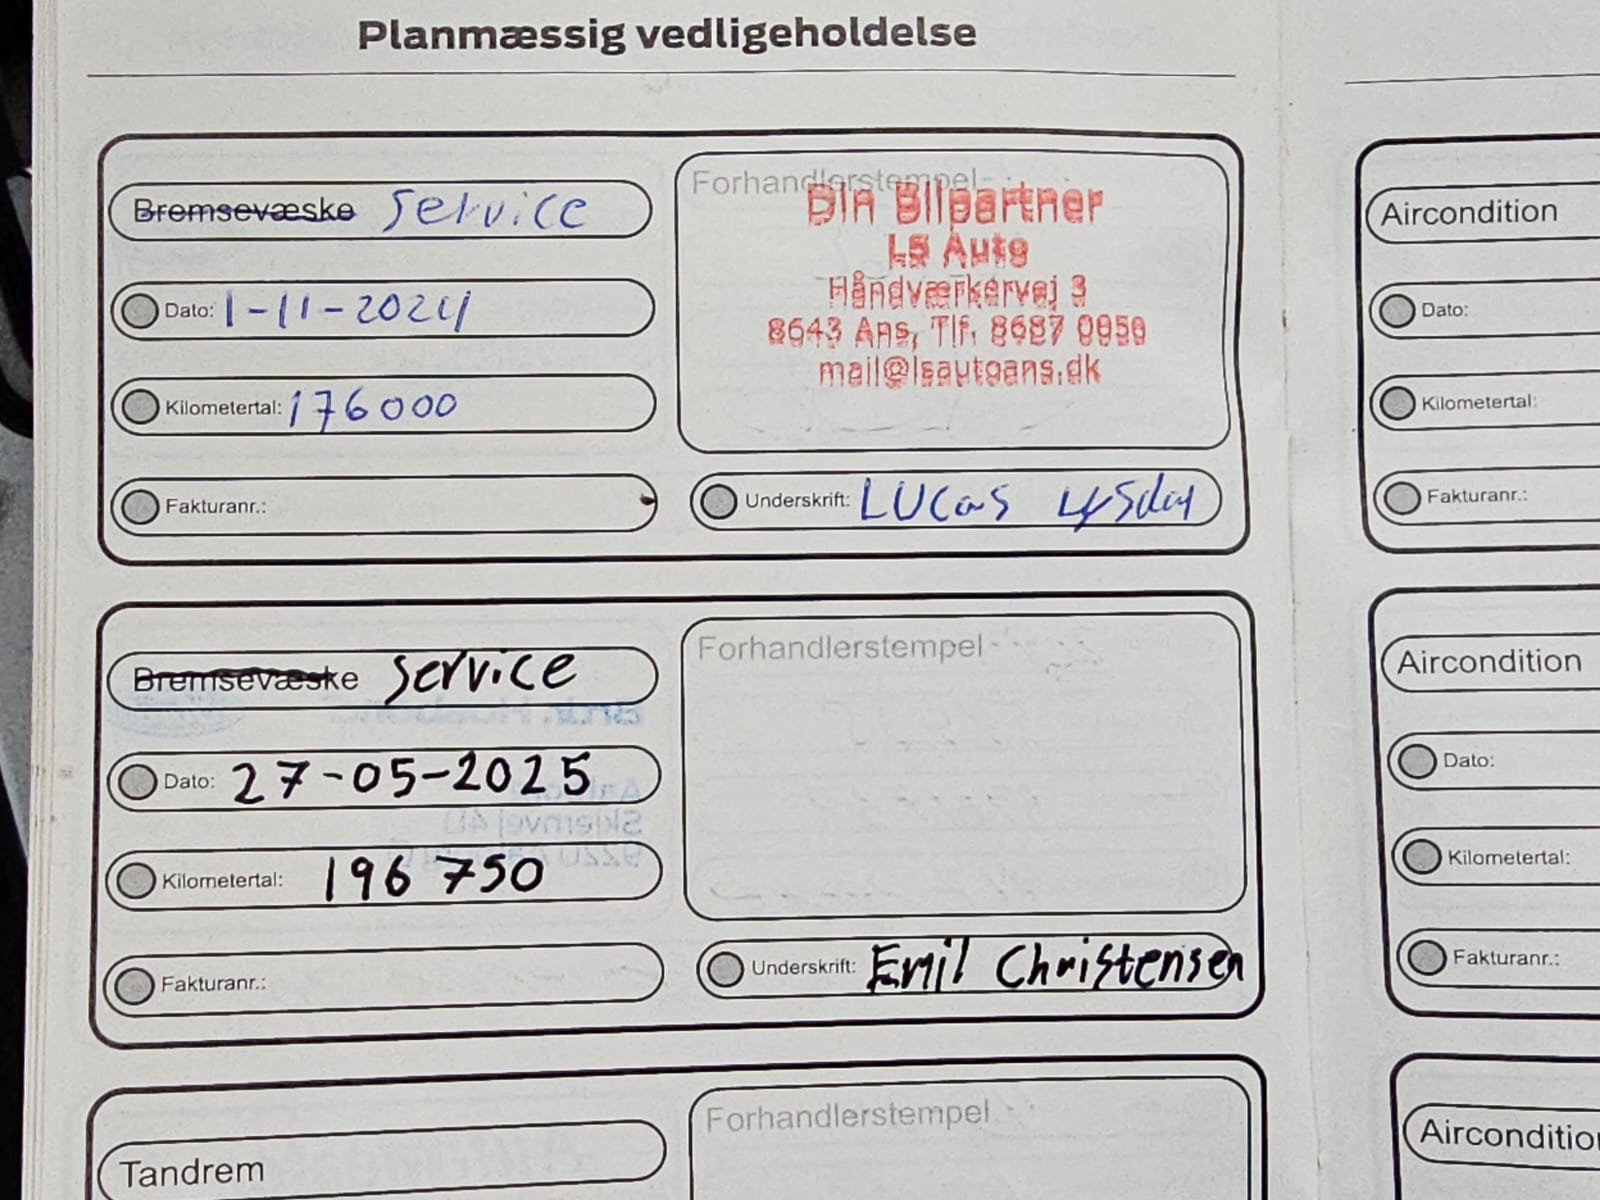 Planmæssig vedligeholdelse
Bremsevæske Service
Dato: 1-11-2024
Kilometertal: 176000
Fakturanr.:
Forhandlerstempel
Din Bilpartner
LS Auto
Håndværkervej 3
8643 Ans, Tlf. 8687 0950
mail@lsautoans.dk
Underskrift: LUCas
Bremsevæske Service
Dato: 27-05-2025
Kilometertal: 196 750
Fakturanr.:
Forhandlerstempel
Underskrift: Emil Christensen
Tandrem
Forhandlerstempel
Aircondition
Dato:
Kilometertal:
Fakturanr.:
Aircondition
Dato:
Kilometertal:
Fakturanr.:
Aircondition